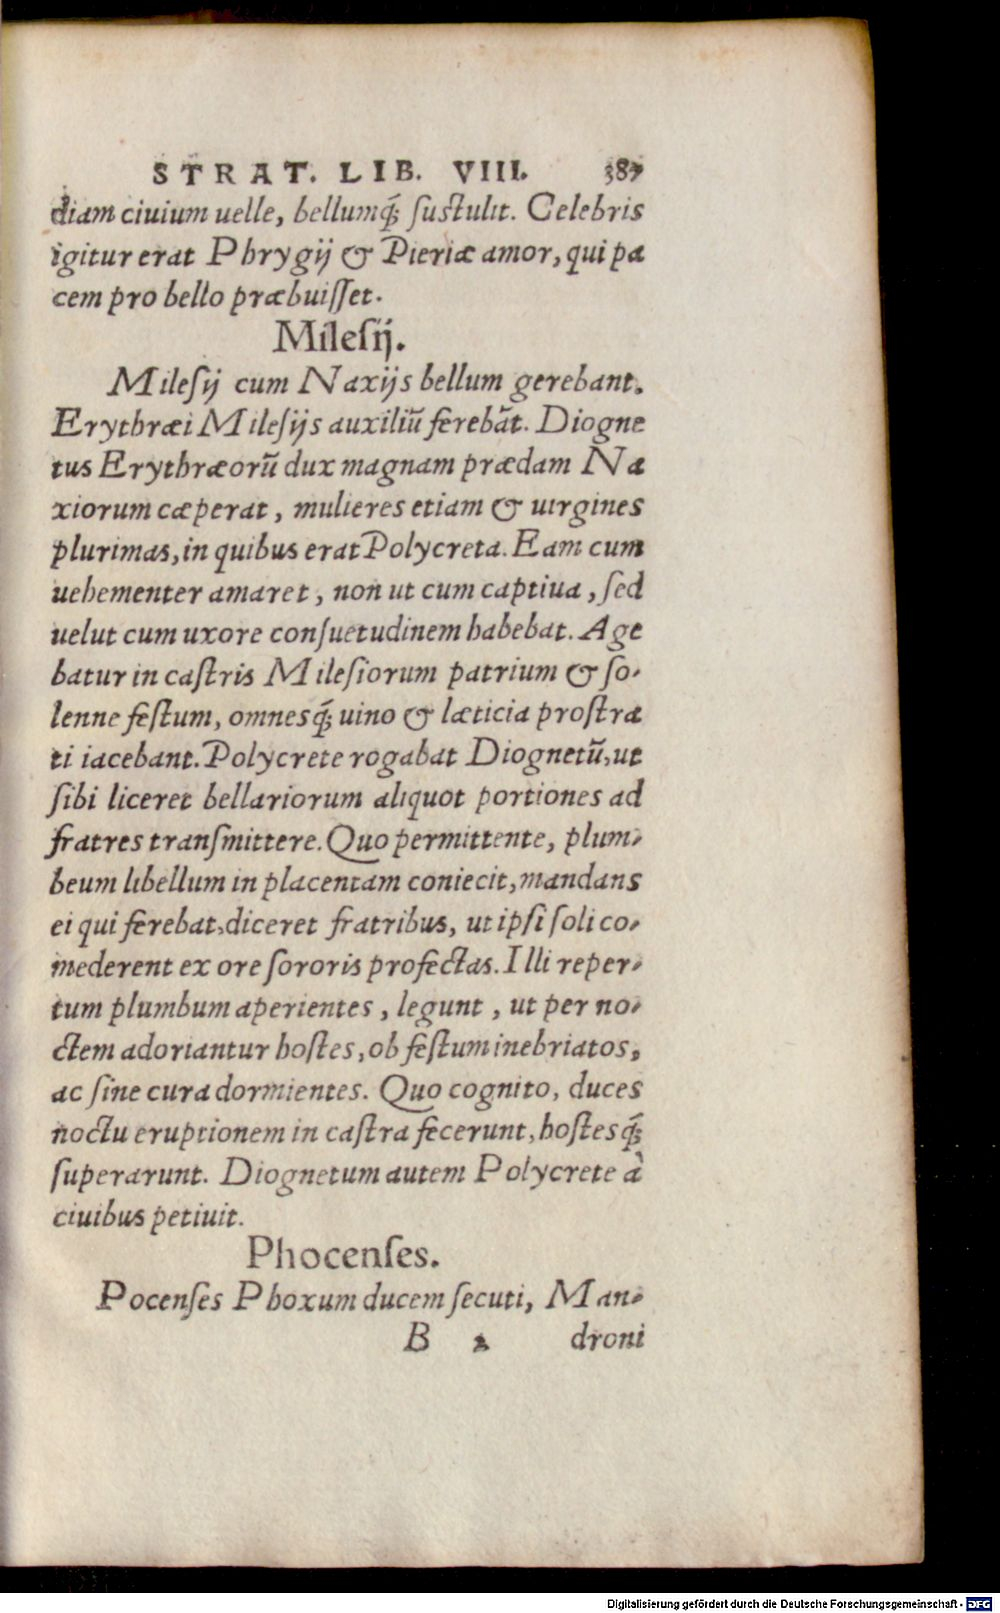 STRAT. LIB. VIII. 387
diam ciuium uelle, bellumq́; ſuſtulit. Celebris
igitur erat Phrygij & Pieriæ amor, qui pa
cem pro bello præbuiſſet.
Mileſij.
Mileſij cum Naxijs bellum gerebant.
Erythræi Mileſijs auxiliũ ferebãt. Diogne
tus Erythræorũ dux magnam prædam Na
xiorum cæperat, mulieres etiam & uirgines
plurimas, in quibus erat Polycreta. Eam cum
uehementer amaret, non ut cum captiua, ſed
uelut cum uxore conſuetudinem habebat. Age
batur in caſtris Mileſiorum patrium & ſo-
lenne feſtum, omnesq́; uino & læticia proſtra
ti iacebant. Polycrete rogabat Diognetũ, ut
ſibi liceret bellariorum aliquot portiones ad
fratres tranſmittere. Quo permittente, plum-
beum libellum in placentam coniecit, mandans
ei qui ferebat, diceret fratribus, ut ipſi ſoli co-
mederent ex ore ſororis profectas. Illi reper-
tum plumbum aperientes, legunt, ut per no-
ctem adoriantur hoſtes, ob feſtum inebriatos,
ac ſine cura dormientes. Quo cognito, duces
noctu eruptionem in caſtra fecerunt, hoſtesq́;
ſuperarunt. Diognetum autem Polycrete à
ciuibus petiuit.
Phocenſes.
Pocenſes Phoxum ducem ſecuti, Man-
B 2 droni
Digitalisierung gefördert durch die Deutsche Forschungsgemeinschaft - DFG